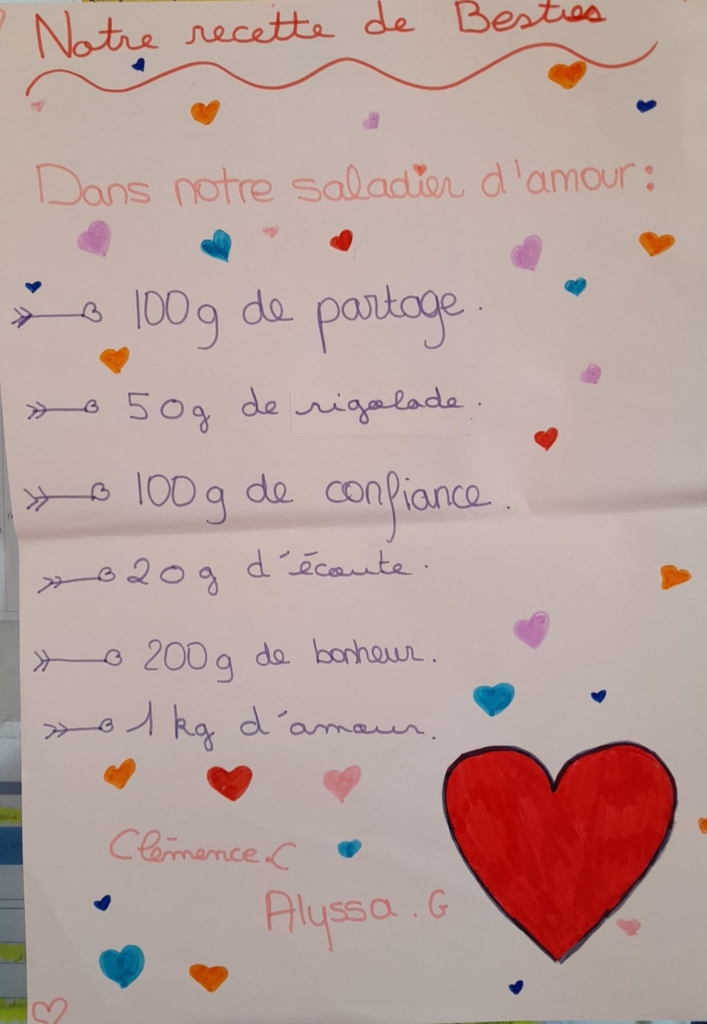 Notre recette de Besties
Dans notre saladier d'amour :
100g de partage.
50g de rigolade.
100g de confiance.
20g d'écoute.
200g de bonheur.
1kg d'amour.
Clémence.C
Alyssa.G